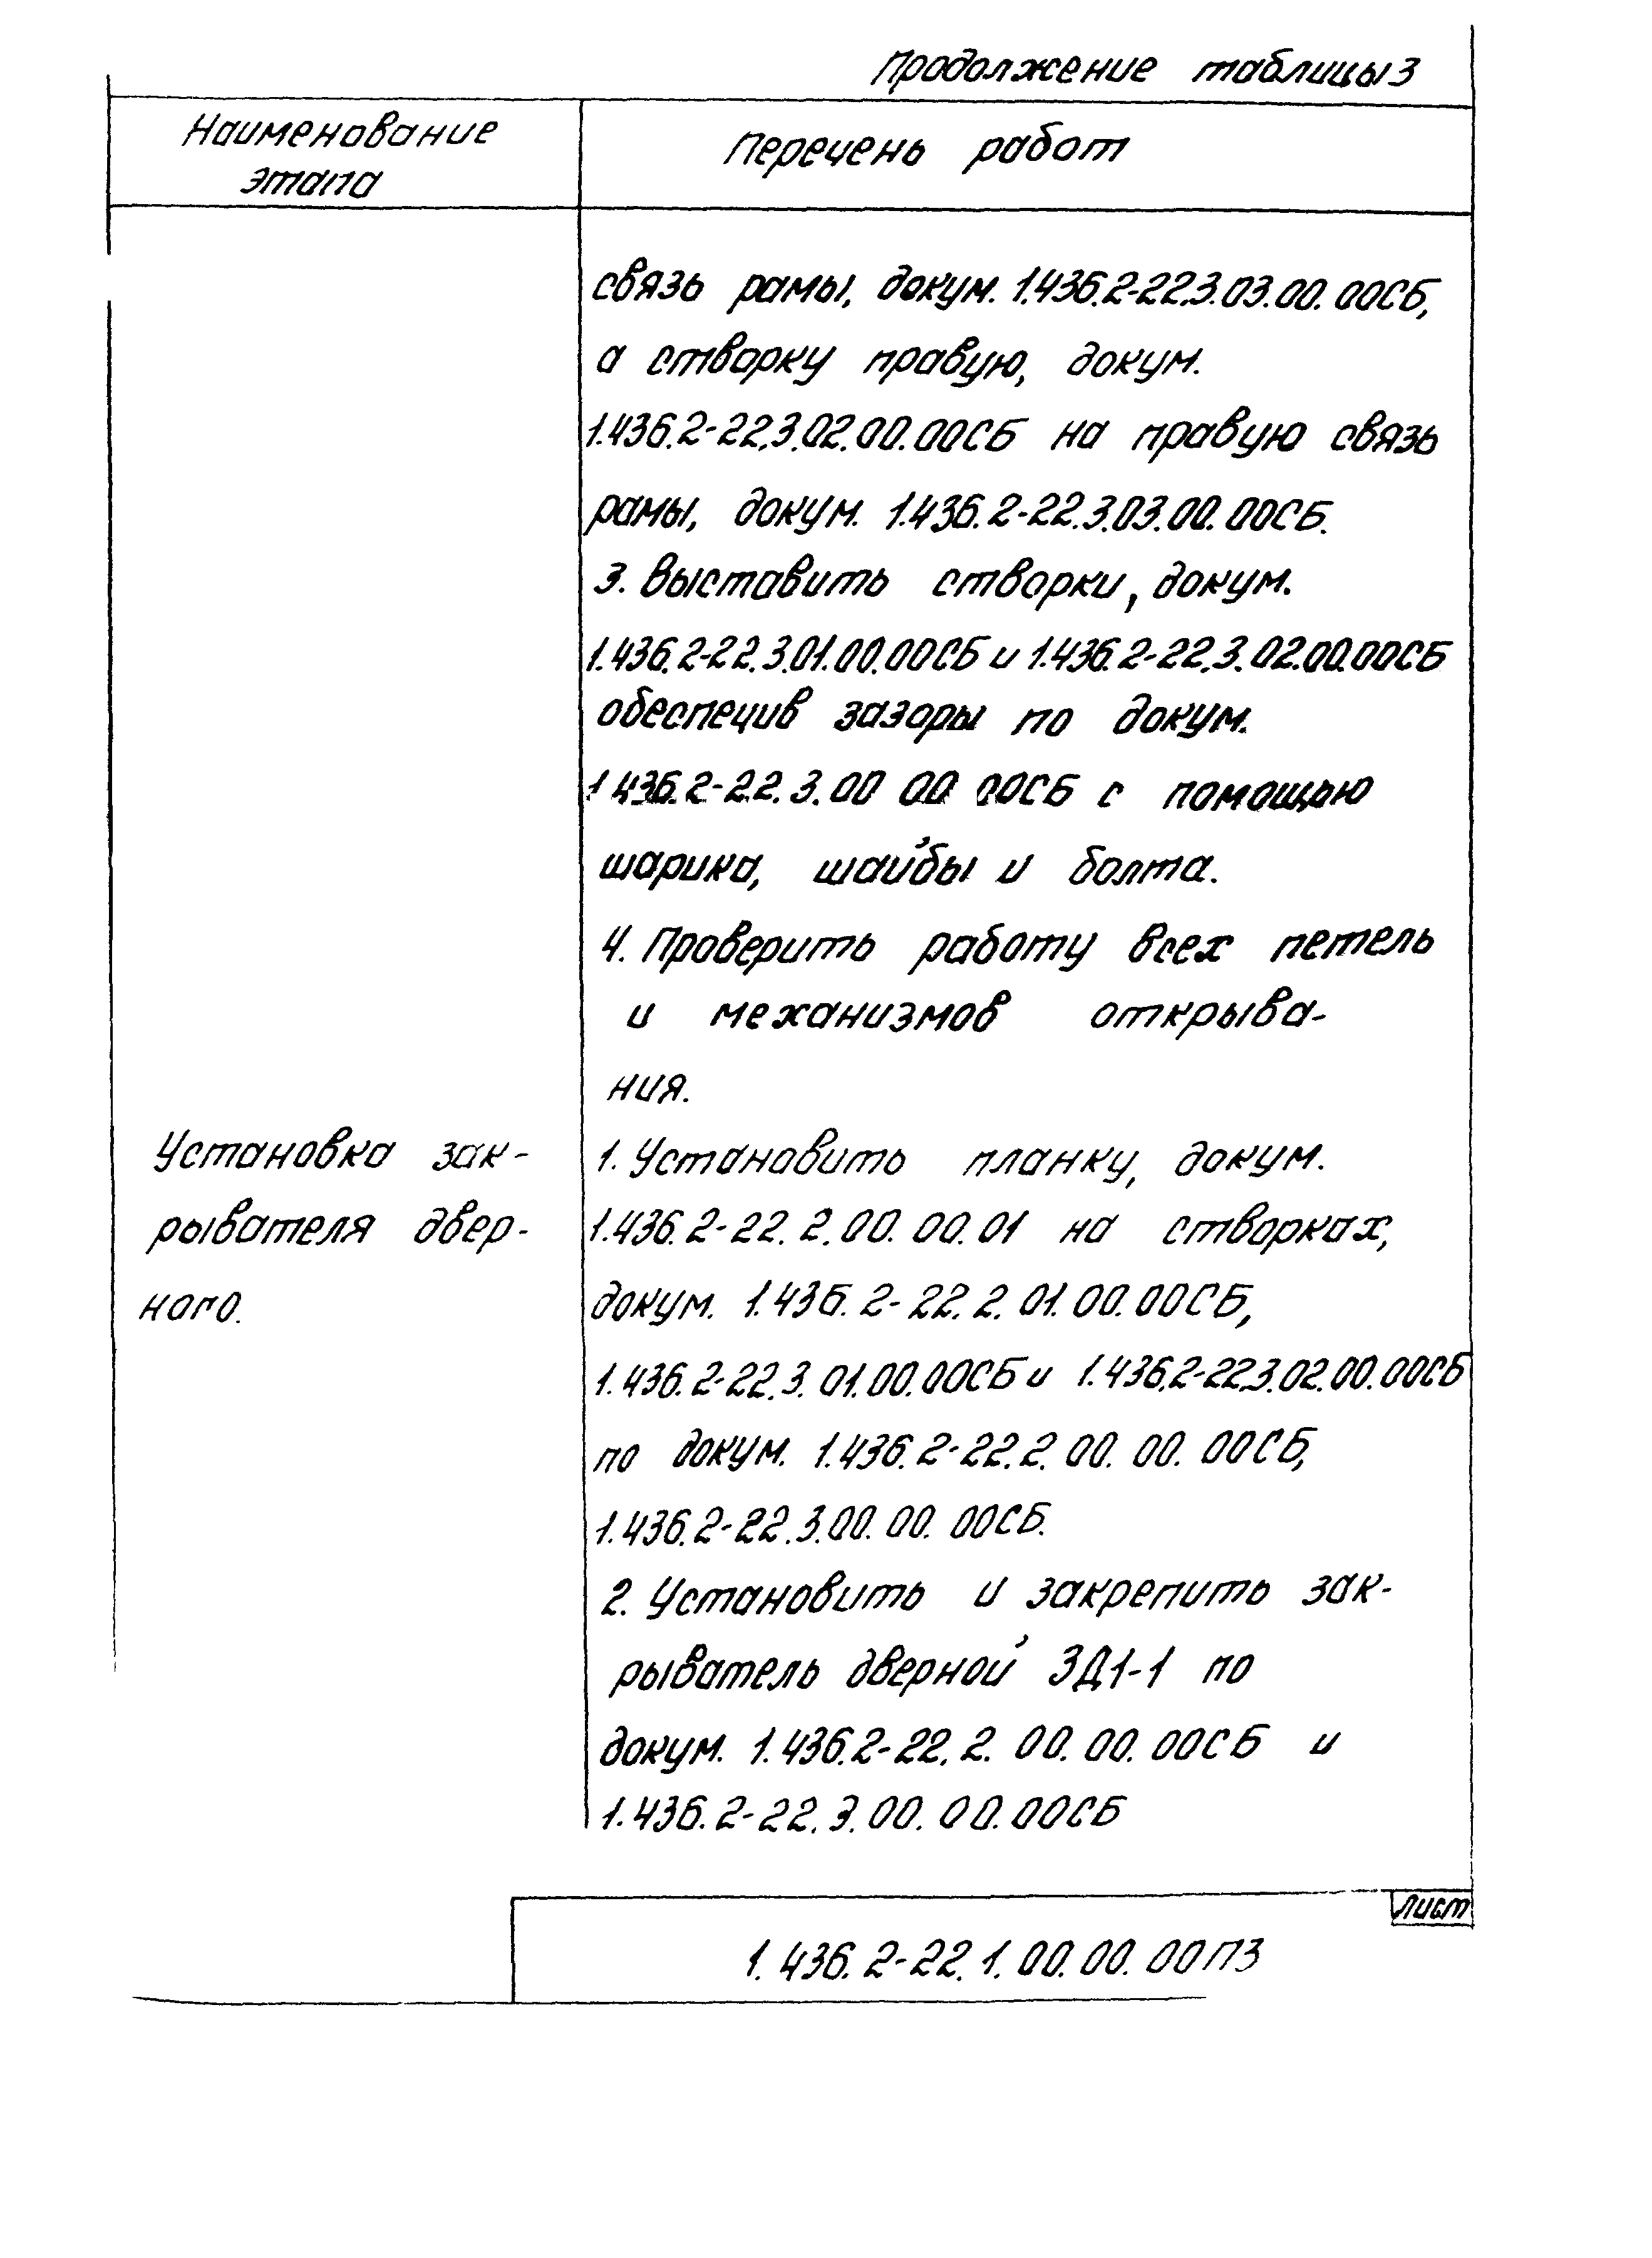 Продолжение таблицы 3
Наименование
этапа
Перечень работ
связь рамы, докум. 1.436.2-22.3.03.00.00СБ,
а створку правую, докум.
1.436.2-22.3.02.00.00СБ на правую связь
рамы, докум. 1.436.2-22.3.03.00.00СБ.
3. Выставить створки, докум.
1.436.2-22.3.01.00.00СБ и 1.436.2-22.3.02.00.00СБ
обеспечив зазоры по докум.
1.436.2-22.3.00 00 00СБ с помощью
шарика, шайбы и болта.
4. Проверить работу всех петель
и механизмов открыва-
ния.
Установка зак-
рывателя двер-
ного.
1. Установить планку, докум.
1.436.2-22.2.00.00.01 на створках,
докум. 1.436.2-22.2.01.00.00СБ,
1.436.2-22.3.01.00.00СБ и 1.436.2-22.3.02.00.00СБ
по докум. 1.436.2-22.2.00.00.00СБ,
1.436.2-22.3.00.00.00СБ.
2. Установить и закрепить зак-
рыватель дверной ЗД1-1 по
докум. 1.436.2-22.2.00.00.00СБ и
1.436.2-22.3.00.00.00СБ
Лист
1.436.2-22.1.00.00.00ПЗ